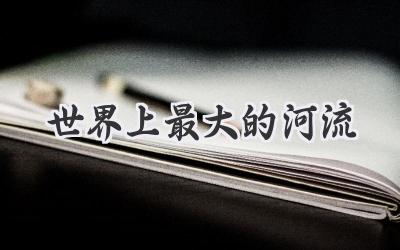 世界上最大的河流